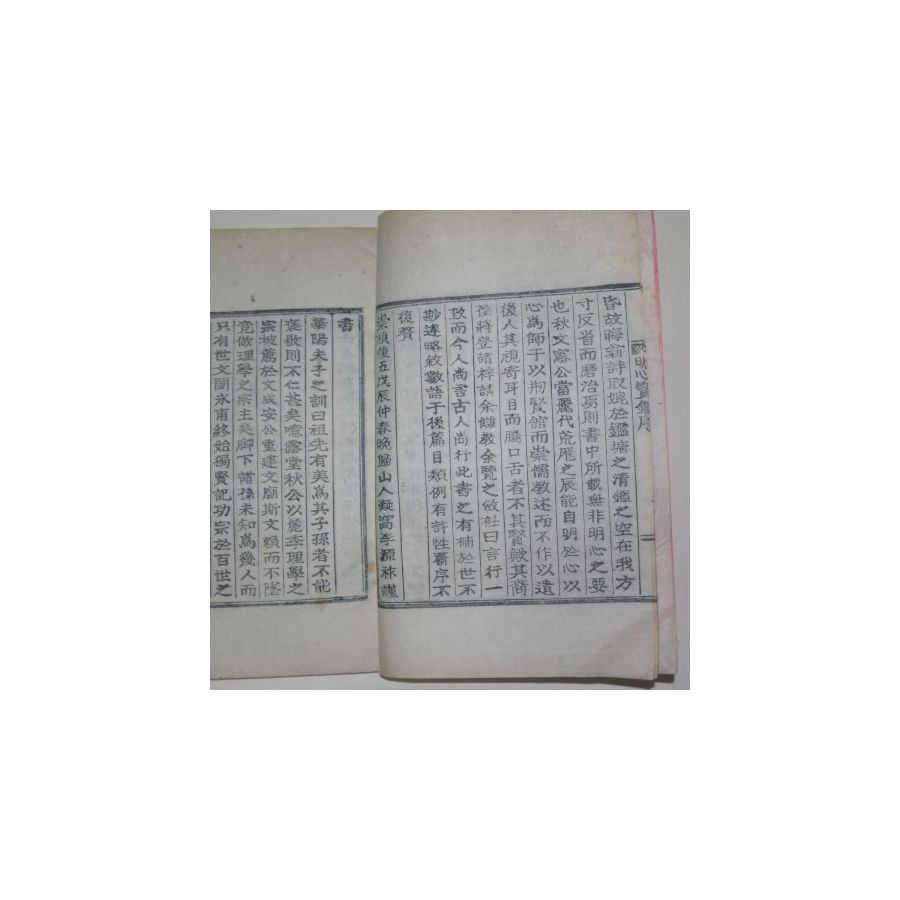 明心寶鑑序
昏故晦翁詩取媲於鑑塘之清鑑之空在我方
寸反昔而磨治焉則書中所載無非明心之要
也秋文憲公當麗代荒厖之辰能自明於心以
心為師于以刱賢館而崇儒敎述而不作以遺
後人其視寄耳目而騰口舌者不其賢歟其裔
孫將登諸梓請余讎敎余覽之斂衽曰言行一
致而今人尚言古人尚行此書之有補於世不
尠遂略敘數語于後篇目類例有許性齋序不
復贅
崇禎後五戊辰仲春晩歸山人凝窩李源祚謹
書
華陽夫子之訓曰祖先有美爲其子孫者不能
褒敭則不仁甚矣噫露堂秋公以麗季理學之
宗被薦於文成安公重建文廟斯文賴而不墜
竟做理學之宗主奚脚下諸孫未知爲幾人而
只有世文閤永甫終始獨賢記功宗於百世之